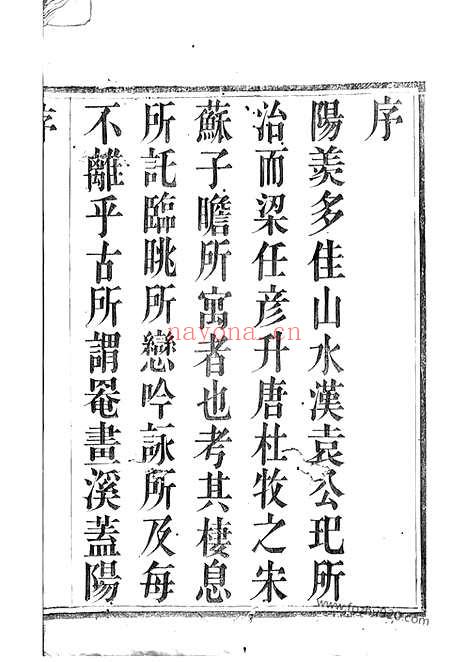 序
陽羨多佳山水漢袁公玘所
治而梁任彦升唐杜牧之宋
蘇子瞻所寓者也考其棲息
所託臨眺所戀吟詠所及每
不離乎古所謂罨畫溪蓋陽
序
nayona.cn